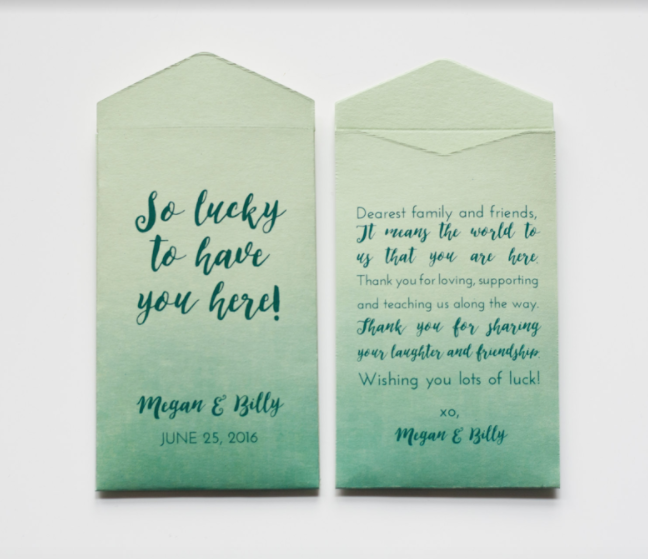 So lucky
to have
you here!
Megan & Billy
JUNE 25, 2016
Dearest family and friends,
It means the world to
us that you are here.
Thank you for loving, supporting
and teaching us along the way.
Thank you for sharing
your laughter and friendship.
Wishing you lots of luck!
xo,
Megan & Billy